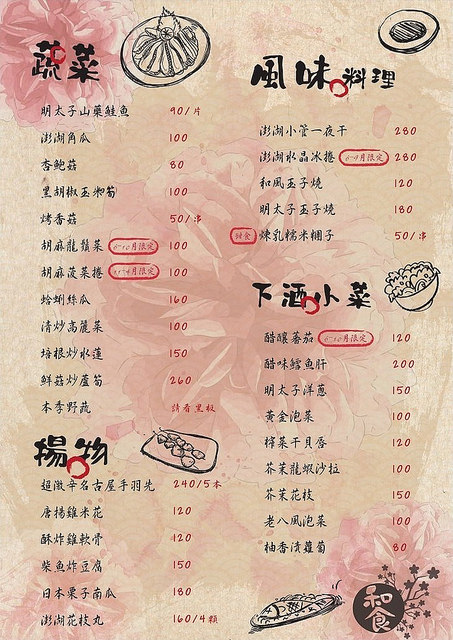 蔬菜
明太子山藥鮭魚 90/片
澎湖角瓜 100
杏鮑菇 80
黑胡椒玉米筍 100
烤香菇 50/串
胡麻龍鬚菜 100
胡麻菠菜捲 100
蛤蜊絲瓜 160
清炒高麗菜 100
培根炒水蓮 150
鮮菇炒蘆筍 260
本季野蔬 請看黑板
揚物
超激辛名古屋手羽先 240/5本
唐揚雞米花 120
酥炸雞軟骨 120
柴魚炸豆腐 150
日本栗子南瓜 180
澎湖花枝丸 160/4顆
風味料理
澎湖小管一夜干 280
澎湖水晶冰捲 6-9月限定 280
和風玉子燒 120
明太子玉子燒 180
甜食 煉乳糯米糰子 50/串
下酒小菜
醋釀蕃茄 120
醋味鱈魚肝 200
明太子洋蔥 150
黃金泡菜 100
榨菜干貝唇 120
芥茉龍蝦沙拉 100
芥茉花枝 150
老八風泡菜 100
柚香漬蘿蔔 80
和食